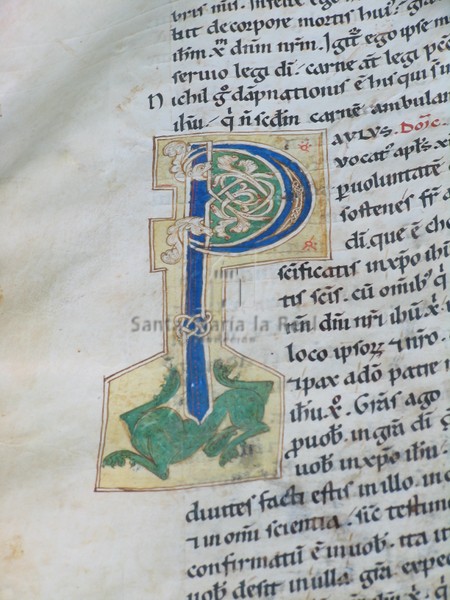 bris mris. Infelix ego
bit de corpore mortis hui᷒. gr̄a
ih̄m xp̄m dn̄m nr̄m. Igit᷒ ego ipse m
seruio legi dī. carne aūt legi pcc̄
Nichil g̊ dāpnationis ē his qui s̄ in
ih̄u. q̄ n̄ sc̄dm carnē ambulan
PAVLVS. Dōīc.
vocat᷒ apl̄s. x
p uoluntatē
sostenes fr̄ a
dī. que ē cho
sc̄ificatis in xp̄o ih̄u
tis sc̄is. cū om̄ib᷒ q̄
dn̄i nr̄i ih̄u. x̄
loco ipsoꝝ ⁊ nr̄o.
⁊ pax a dō patre n
ih̄u. x̊. Gr̄as ago
p uob̄. in gr̄a dī q̄
uob̄ in xp̄o ih̄u.
diuites facti estis in illo. in o
⁊ in om̄i scientia. sic̄ testim
confirmatū ē in uob̄. ita ut
uob̄ desit in ulla gr̄a expec
Santa María la Real
FUNDACIÓN